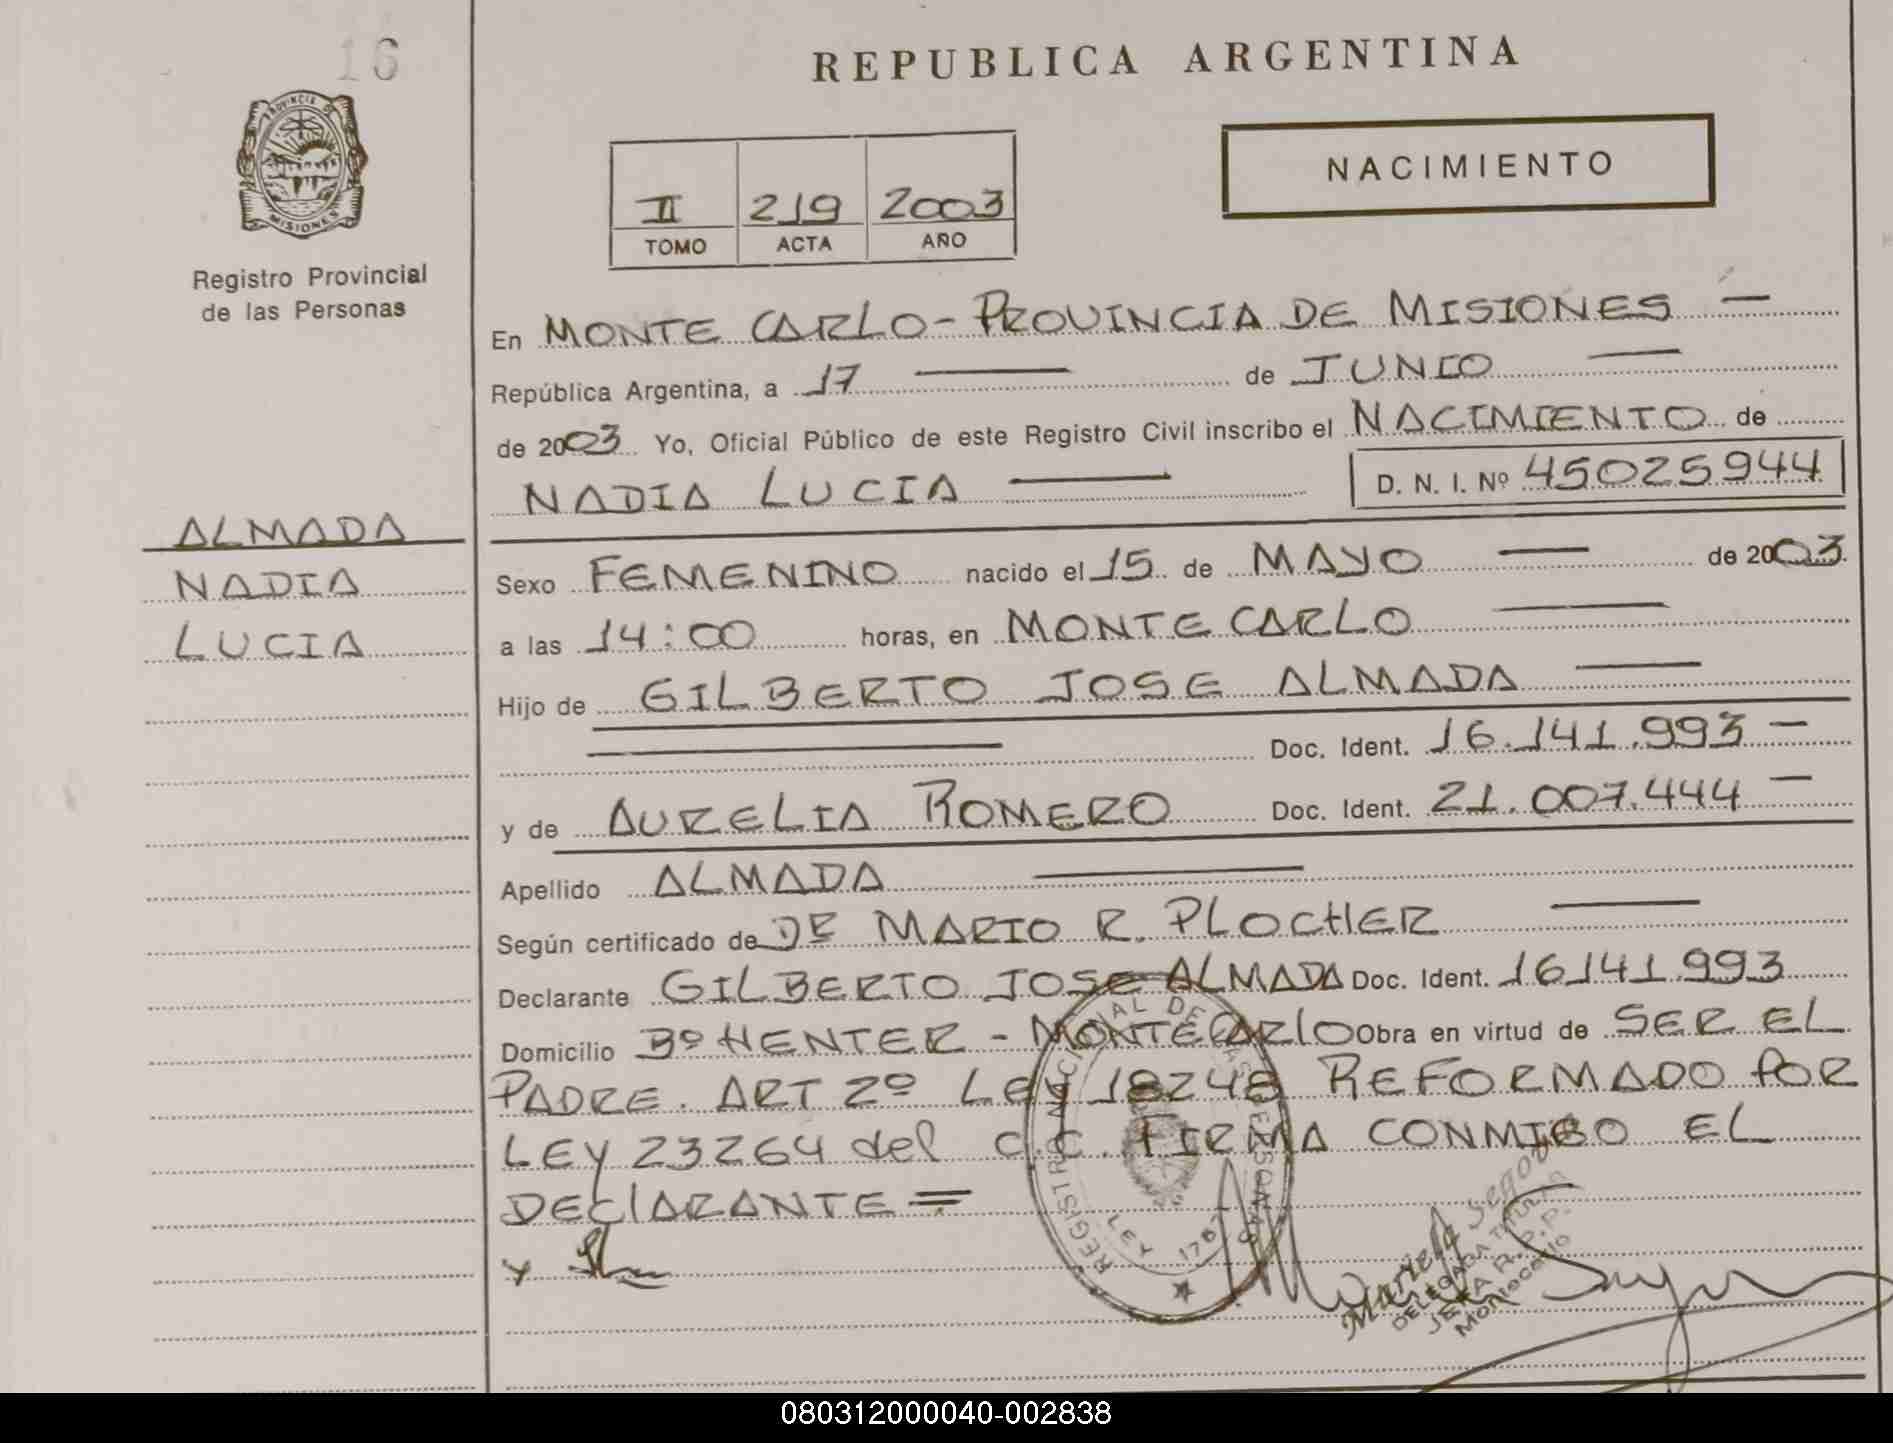 16
REPUBLICA ARGENTINA
PROVINCIA DE
MISIONES
Registro Provincial
de las Personas
NACIMIENTO
II 219 2003
TOMO ACTA AÑO
En MONTE CARLO - PROVINCIA DE MISIONES —
República Argentina, a 17 — de JUNIO —
de 2003 Yo, Oficial Público de este Registro Civil inscribo el NACIMIENTO de
NADIA LUCIA — D. N. I. Nº 45025944
ALMADA
NADIA
LUCIA
Sexo FEMENINO nacido el 15 de MAYO — de 2003.
a las 14:00 horas, en MONTECARLO —
Hijo de GILBERTO JOSE ALMADA —
— Doc. Ident. 16.141.993 —
y de AURELIA ROMERO Doc. Ident. 21.007.444 —
Apellido ALMADA —
Según certificado de DR MARIO R. PLOCHER —
Declarante GILBERTO JOSE ALMADA Doc. Ident. 16141.993
Domicilio Bº HENTER - MONTECARlO Obra en virtud de SER EL
PADRE. ART 2º LEY 18248 REFORMADO POR
LEY 23264 del C.C. FIRMA CONMIGO EL
DEClARANTE =
REGISTRO NACIONAL DE LAS PERSONAS
LEY
Mariela Segov
DELEGADA TITULAR
JEFA R.P.P.
Montecarlo
080312000040-002838